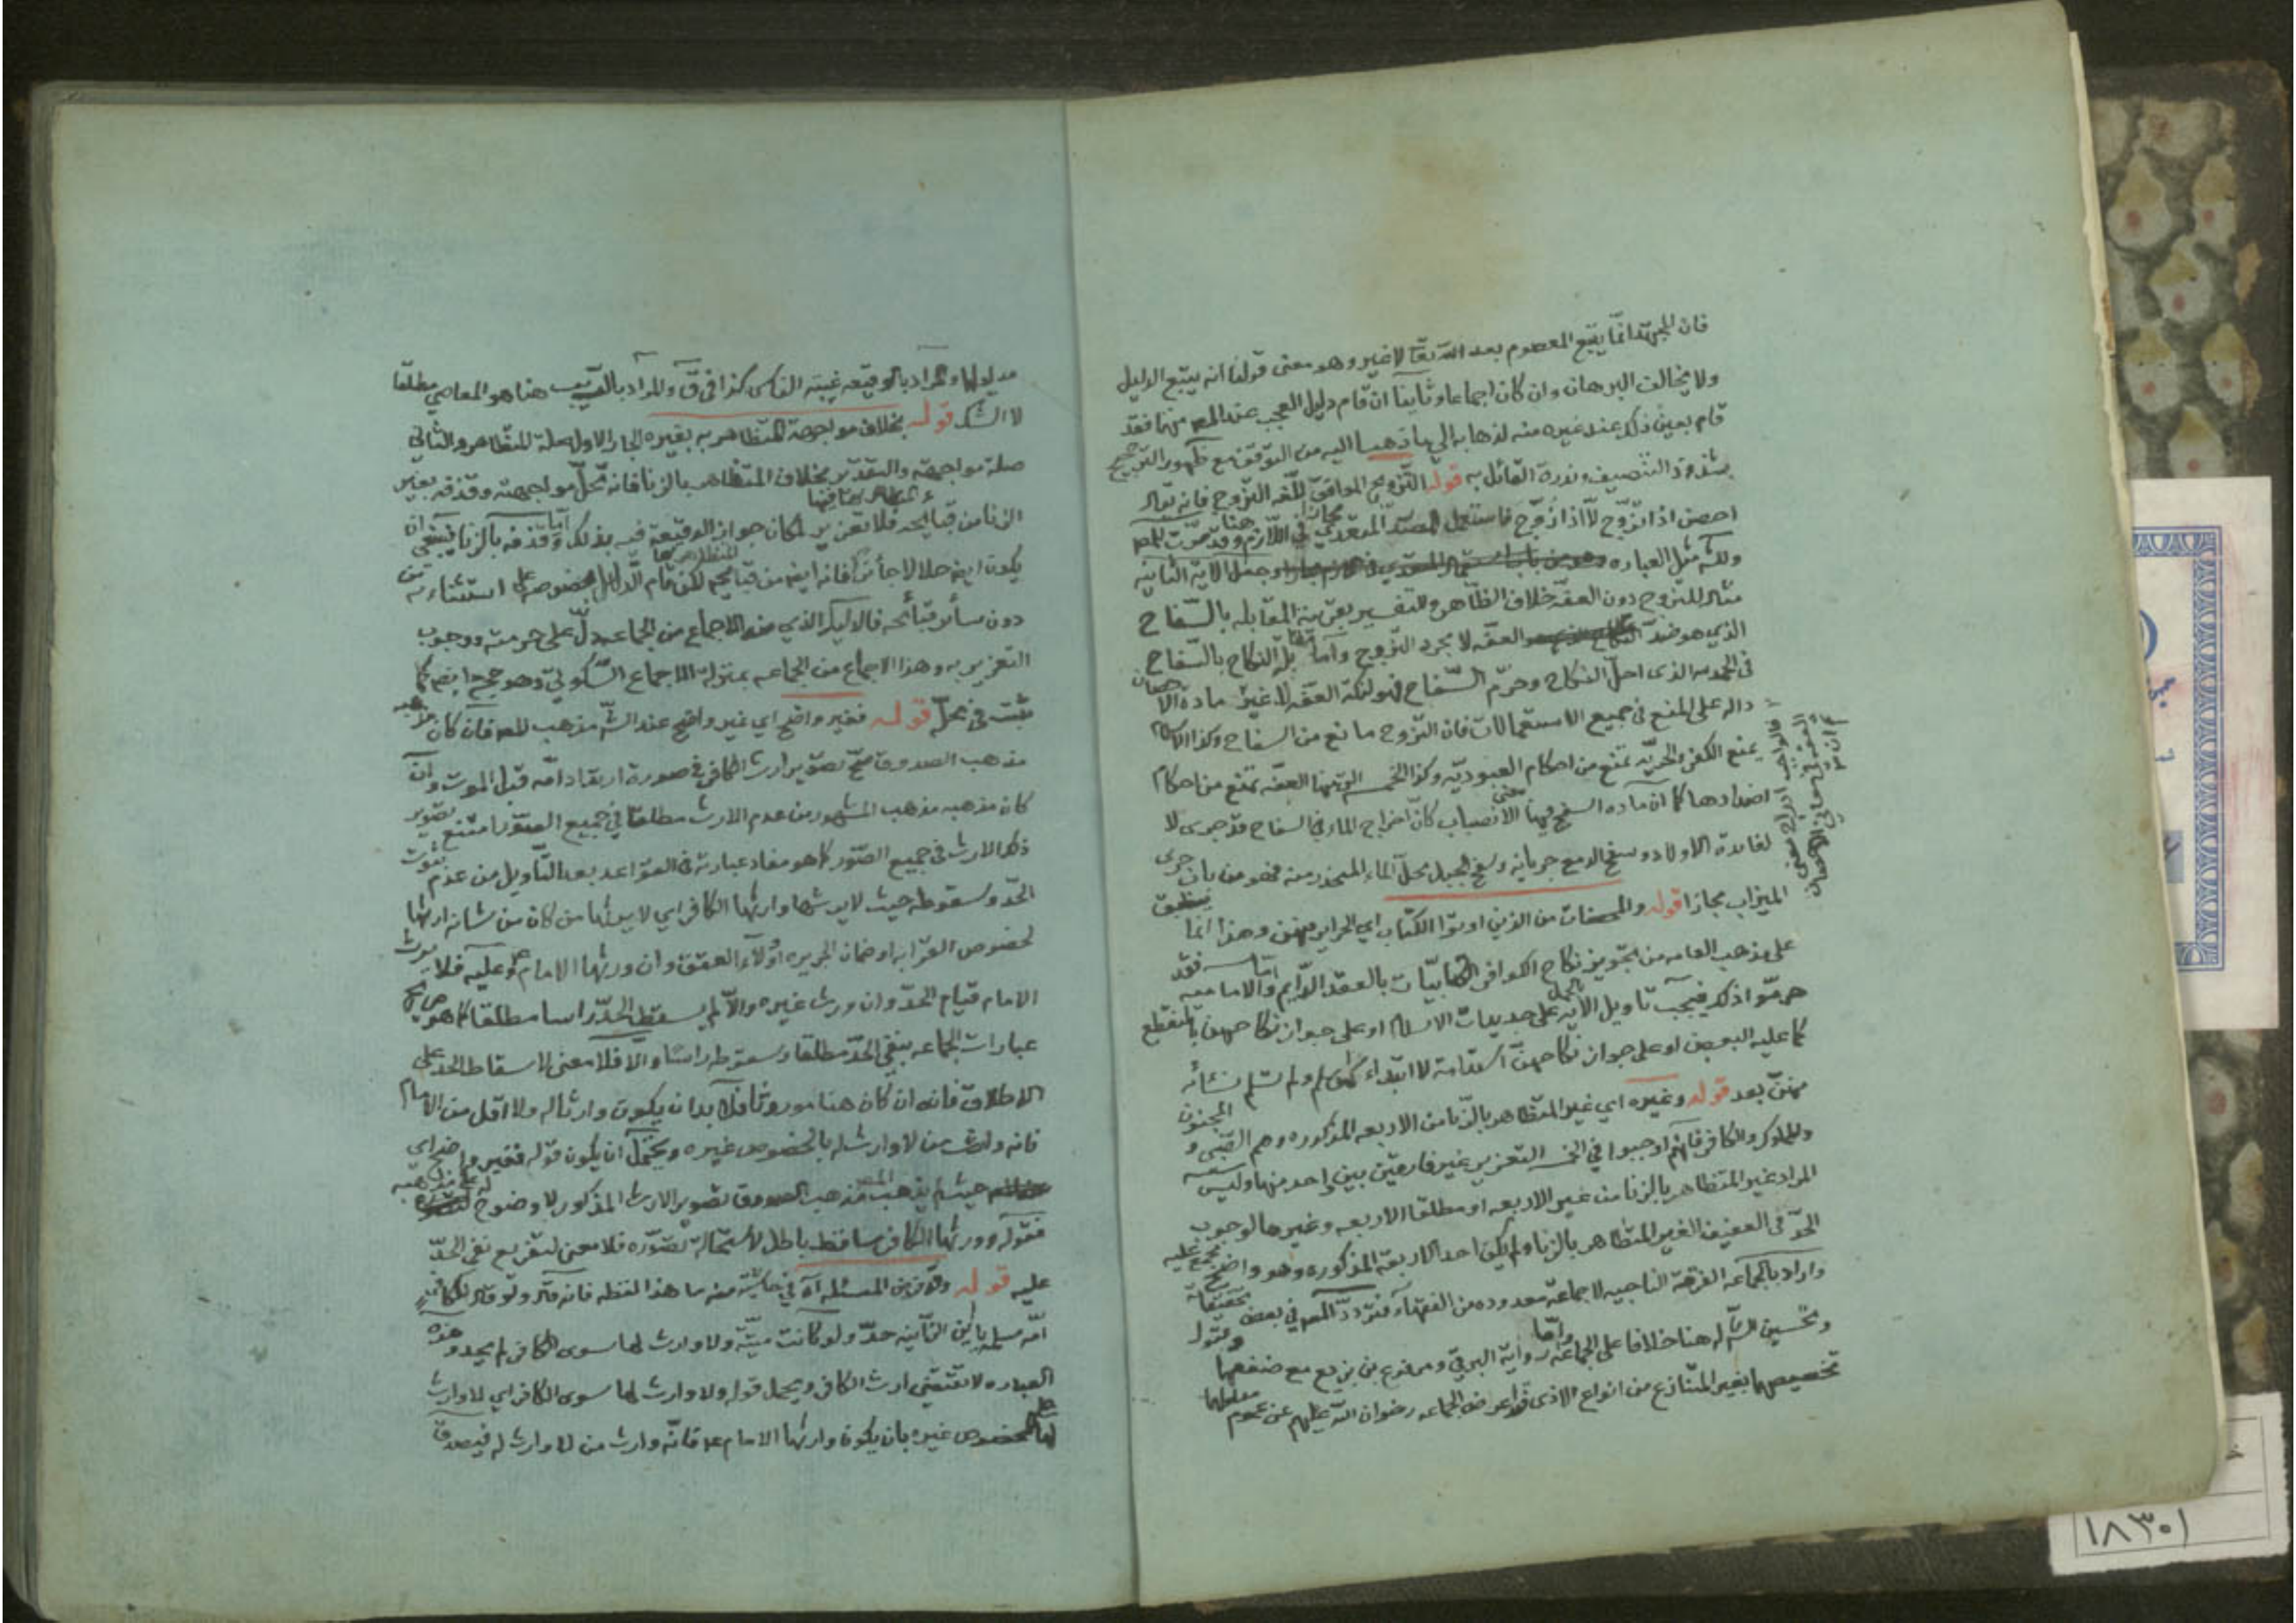 فان المجتهد انما يتبع المعصوم بعد الله تعا لا غير وهو معنى قولنا انه يتبع الدليل
ولا يخالف البرهان وان كان اجماعا وثانيا ان قام دليل العجب عند المصـ منها فقد
قام بعين ذلك عند غيره منه لذهابه الى ما ذهب اليه من التوقف مع ظهور الترجيح
بشذوذ التنصيف وندرة القائل به قوله التزويج الموافق للغة التزوج فانه يقال
احصن اذا تزوج لا اذا زوج فاستعمل المصدر المتعدي هنا مجازا في اللازم وقد مرت للمصـ
ولكنه مثل العباره وجعل الآية الثانيه
مثالا للتزوج دون العفة خلاف الظاهر والتفسير بقرينة المقابله بالسفاح
الذي هو ضد العفه لا مجرد التزوج واما تقابل النكاح بالسفاح
في الحمد لله الذى احل النكاح وحرم السفاح فهو لنكتة العفه لا غير مادة الاحصان
داله على المنع في جميع الاستعمالات فان التزوج مانع من السفاح وكذا الاسلام
يمنع الكفر والحريه تمنع من احكام العبوديه وكذا العفه تمنع من احكام
اضدادها كما ان ماده السفح فيها معنى الانصباب كأن اخراج الماء في السفاح قد جرى لا
لفائدة الاولاد وسفح الدمع جريانه وسفح الجبل محل الماء المنحدر منه فهو من باب جرى
الميزاب مجازا قوله والمحصنات من الذين اوتوا الكتاب اي الحراير منهن وهذا انما ينطبق
على مذهب العامه من تجويز نكاح الكوافر الكتابيات بالعقد الدايم واما الاماميه فقد
حرموا ذلك فيجب تاويل الآيه بالحمل على جديدات الاسلام او على جواز نكاحهن بالمنقطع
كما عليه البعض او على جواز نكاحهن استدامة لا ابتداء كمن اسلم ولم تسلم نسائه
منهن بعد قوله وغيره اي غير المتظاهر بالزنا من الاربعه المذكوره وهم الصبي والمجنون
والمملوك والكافر فانهم اوجبوا في الخمسه التعزير غير فارقين بين واحد منها وليس
المراد غير المتظاهر بالزنا من غير الاربعه او مطلقا الاربعه وغيرها لوجوب
الحد في العفيف الغير المتظاهر بالزنا ولم يكن احد الاربعة المذكوره وهو واضح مجمع عليه
واراد بالجماعه الفرقة الناجيه لا جماعة معدوده من الفقهاء فتردد المصـ في بعض تحقيقاته
وتحسين الشـ له هنا خلافا على الجماعة واما رواية البرقي ومرفوع بن بزيع مع ضعفهما وقبول
تخصيصهما بغير المتنازع من انواع الاذى قد اعرض الجماعه رضوان الله عليهم عن عموم
مدلولها والمراد بالوقيعه غيبة الناس كذا في ق والمراد بالريب هنا هو المعاصي مطلقا
لا الشك قوله بخلاف مواجهة المتظاهر به بغيره الجار الاول صلة للمتظاهر والثاني
صلة مواجهة والتقدير بخلاف المتظاهر بالزنا فانه تحل مواجهته وقذفه بغير
الزنا من قبائحه فلا تعزير لمكان جواز الوقيعة فيه بذلك واما قذفه بالزنا فينبغي ان
يكون ايضا حلالا جائزا فانه ايضا من قبائحه لكن قام الدليل بخصوصه على استثنائه من
دون سائر قبائحه فالدليل الذي هو الاجماع من الجماعه دل على حرمته ووجوب
التعزير به وهذا الاجماع من الجماعه بمنزلة الاجماع السكوتي وهو حجة ايضا كما
ثبت في محله قوله فغير واضح اي غير واضح عند الشـ مذهب المصـ فان كان مذهبه
مذهب الصدوق صح تصوير ارث الكافر في صورة ارتداد امه قبل الموت وان
كان مذهبه مذهب المشهور من عدم الارث مطلقا في جميع الصور امتنع تصوير
ذكر الارث في جميع الصور كما هو مفاد عبارته في القواعد بعد التأويل من عدم ثبوت
الحد وسقوطه حيث لا يرثها وارثها الكافر اي لا يرثها من كان من شانه ارثها
لخصوص القرابه او ضمان الجريره او ولاء العتق وان ورثها الامام ع وعليه فلا يورث
الامام قيام الحد وان ورث غيره والا لم يسقط الحد راسا مطلقا كما هو صريح
عبارات الجماعه بنفي الحد مطلقا وسقوطه راسا والا فلا معنى لاسقاط الحد على
الاطلاق فانه ان كان هنا موروثا فلا بد ان يكون وارثا له ولا اقل من الامام
فانه وارث من لا وارث له بالخصوص غيره ويحتمل ان يكون قوله فغير واضح اي
حيث لم يذهب المصـ مذهب الصدوق تصوير الارث المذكور لا وضوح له على مذهبه
فقوله وورثها الكافر ساقط باطل لاستحالة تصوره فلا معنى لتفريع نفي الحد
عليه قوله وقد فرض المسئلة آه في حاشية منه ما هذا لفظه فانه قال ولو قال لكافر
امه مسلمه يا بن الزانيه حد ولو كانت ميته ولا وارث لها سوى الكافر لم يحد وهذه
العباره لا تقتضي ارث الكافر ويحمل قوله ولا وارث لها سوى الكافر اي لا وارث
لها على الخصوص غيره بان يكون وارثها الامام ع فانه وارث من لا وارث له فيصدق
١٨٣٠١